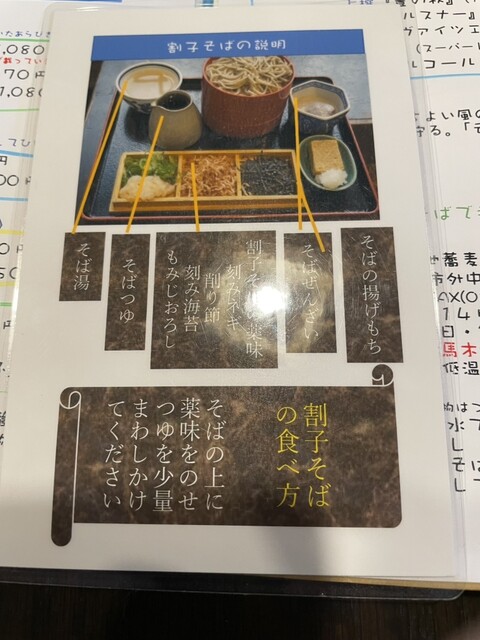 割子そばの説明
そばの揚げもち
そばぜんざい
割子そば
薬味
刻みネギ
削り節
刻み海苔
もみじおろし
そばつゆ
そば湯
割子そば
の食べ方
そばの上に
薬味をのせ
つゆを少量
まわしかけ
てください
,080
70円
1,080
00円
コール
よい風の
守る。「
ばで
蕎麦
市外中
AX(0
14
日・
馬木
低温
水で
し
そば
し